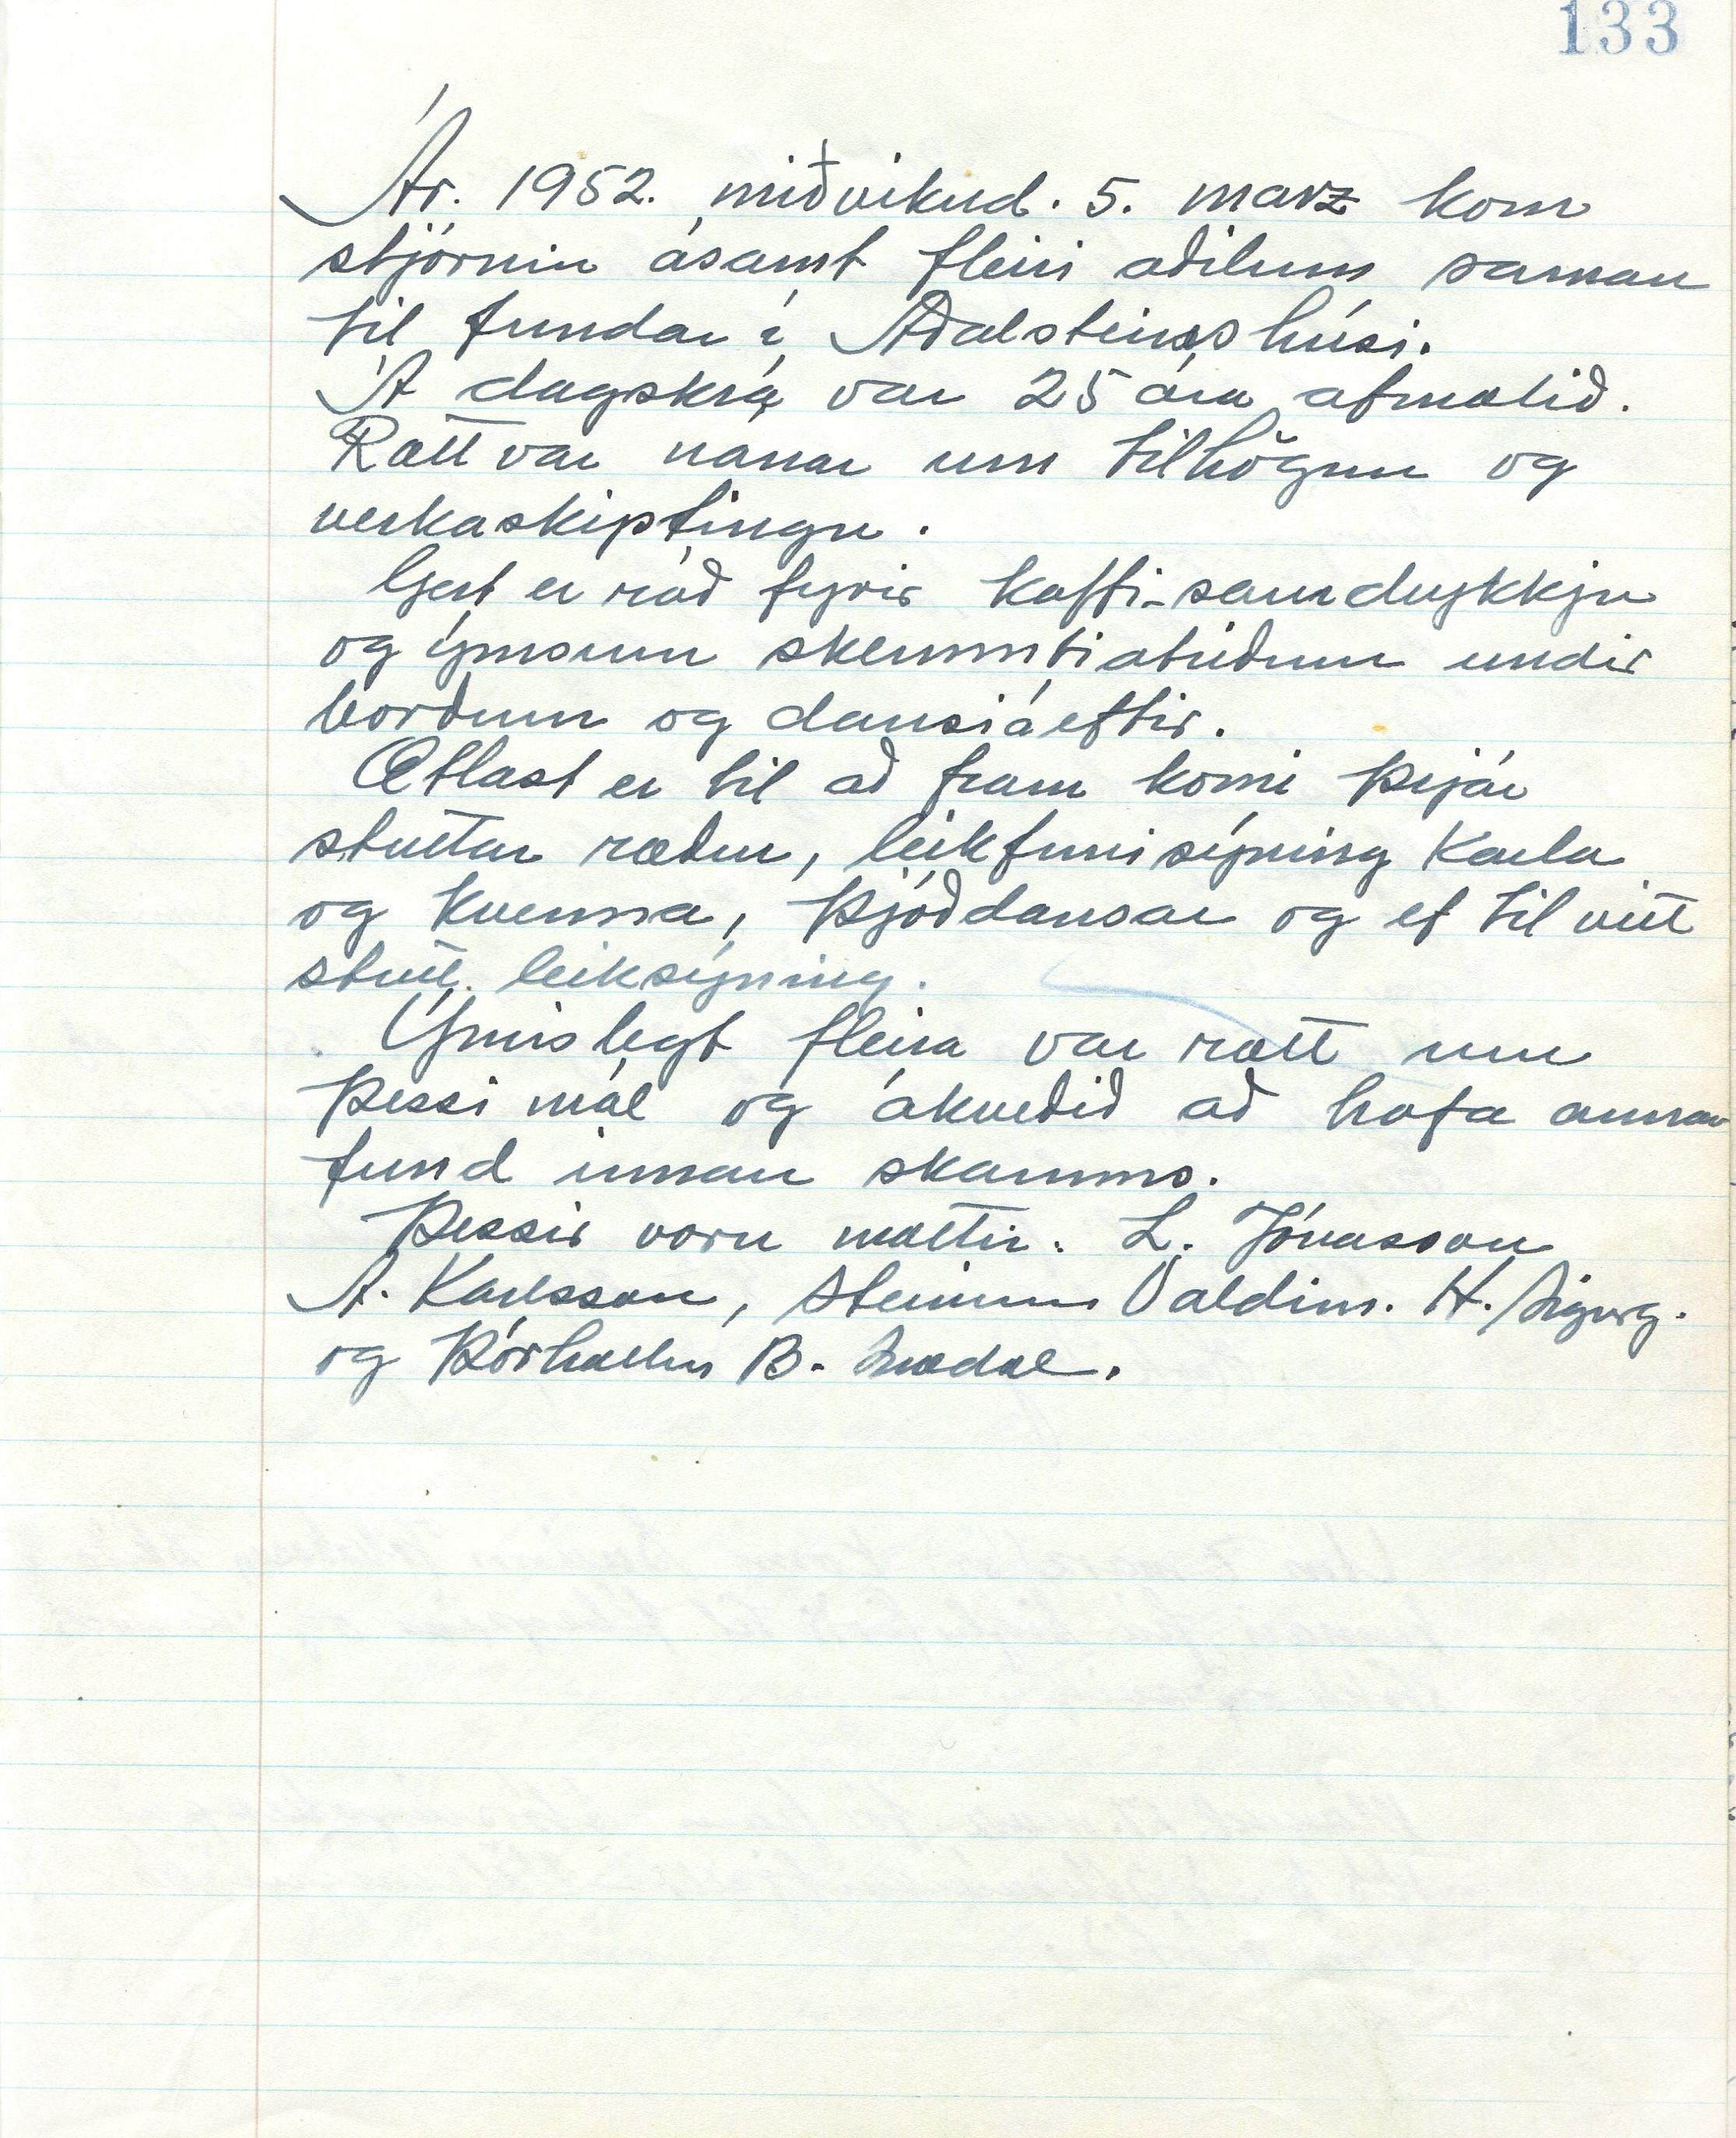 133
Ár. 1952. miðvikud. 5. marz kom
stjórnin ásamt fleiri aðilum saman
til fundar í Aðalsteinshúsi.
Á dagskrá var 25 ára afmælið.
Rætt var nánar um tilhögun og
verkaskiptingu.
Gert er ráð fyrir kaffi-samdrykkju
og ýmsum skemmtiatriðum undir
borðum og dansi á eftir.
Ætlast er til að fram komi þrjár
stuttar ræður, leikfimisýning karla
og kvenna, þjóðdansar og ef til vill
stutt leiksýning.
Ýmislegt fleira var rætt um
þessi mál og ákveðið að hafa annan
fund innan skamms.
Þessir voru mættir. L. Jónasson
A. Karlsson, Steinunn Valdim. H. Sigurg.
og Þórhalla B. Snædal.